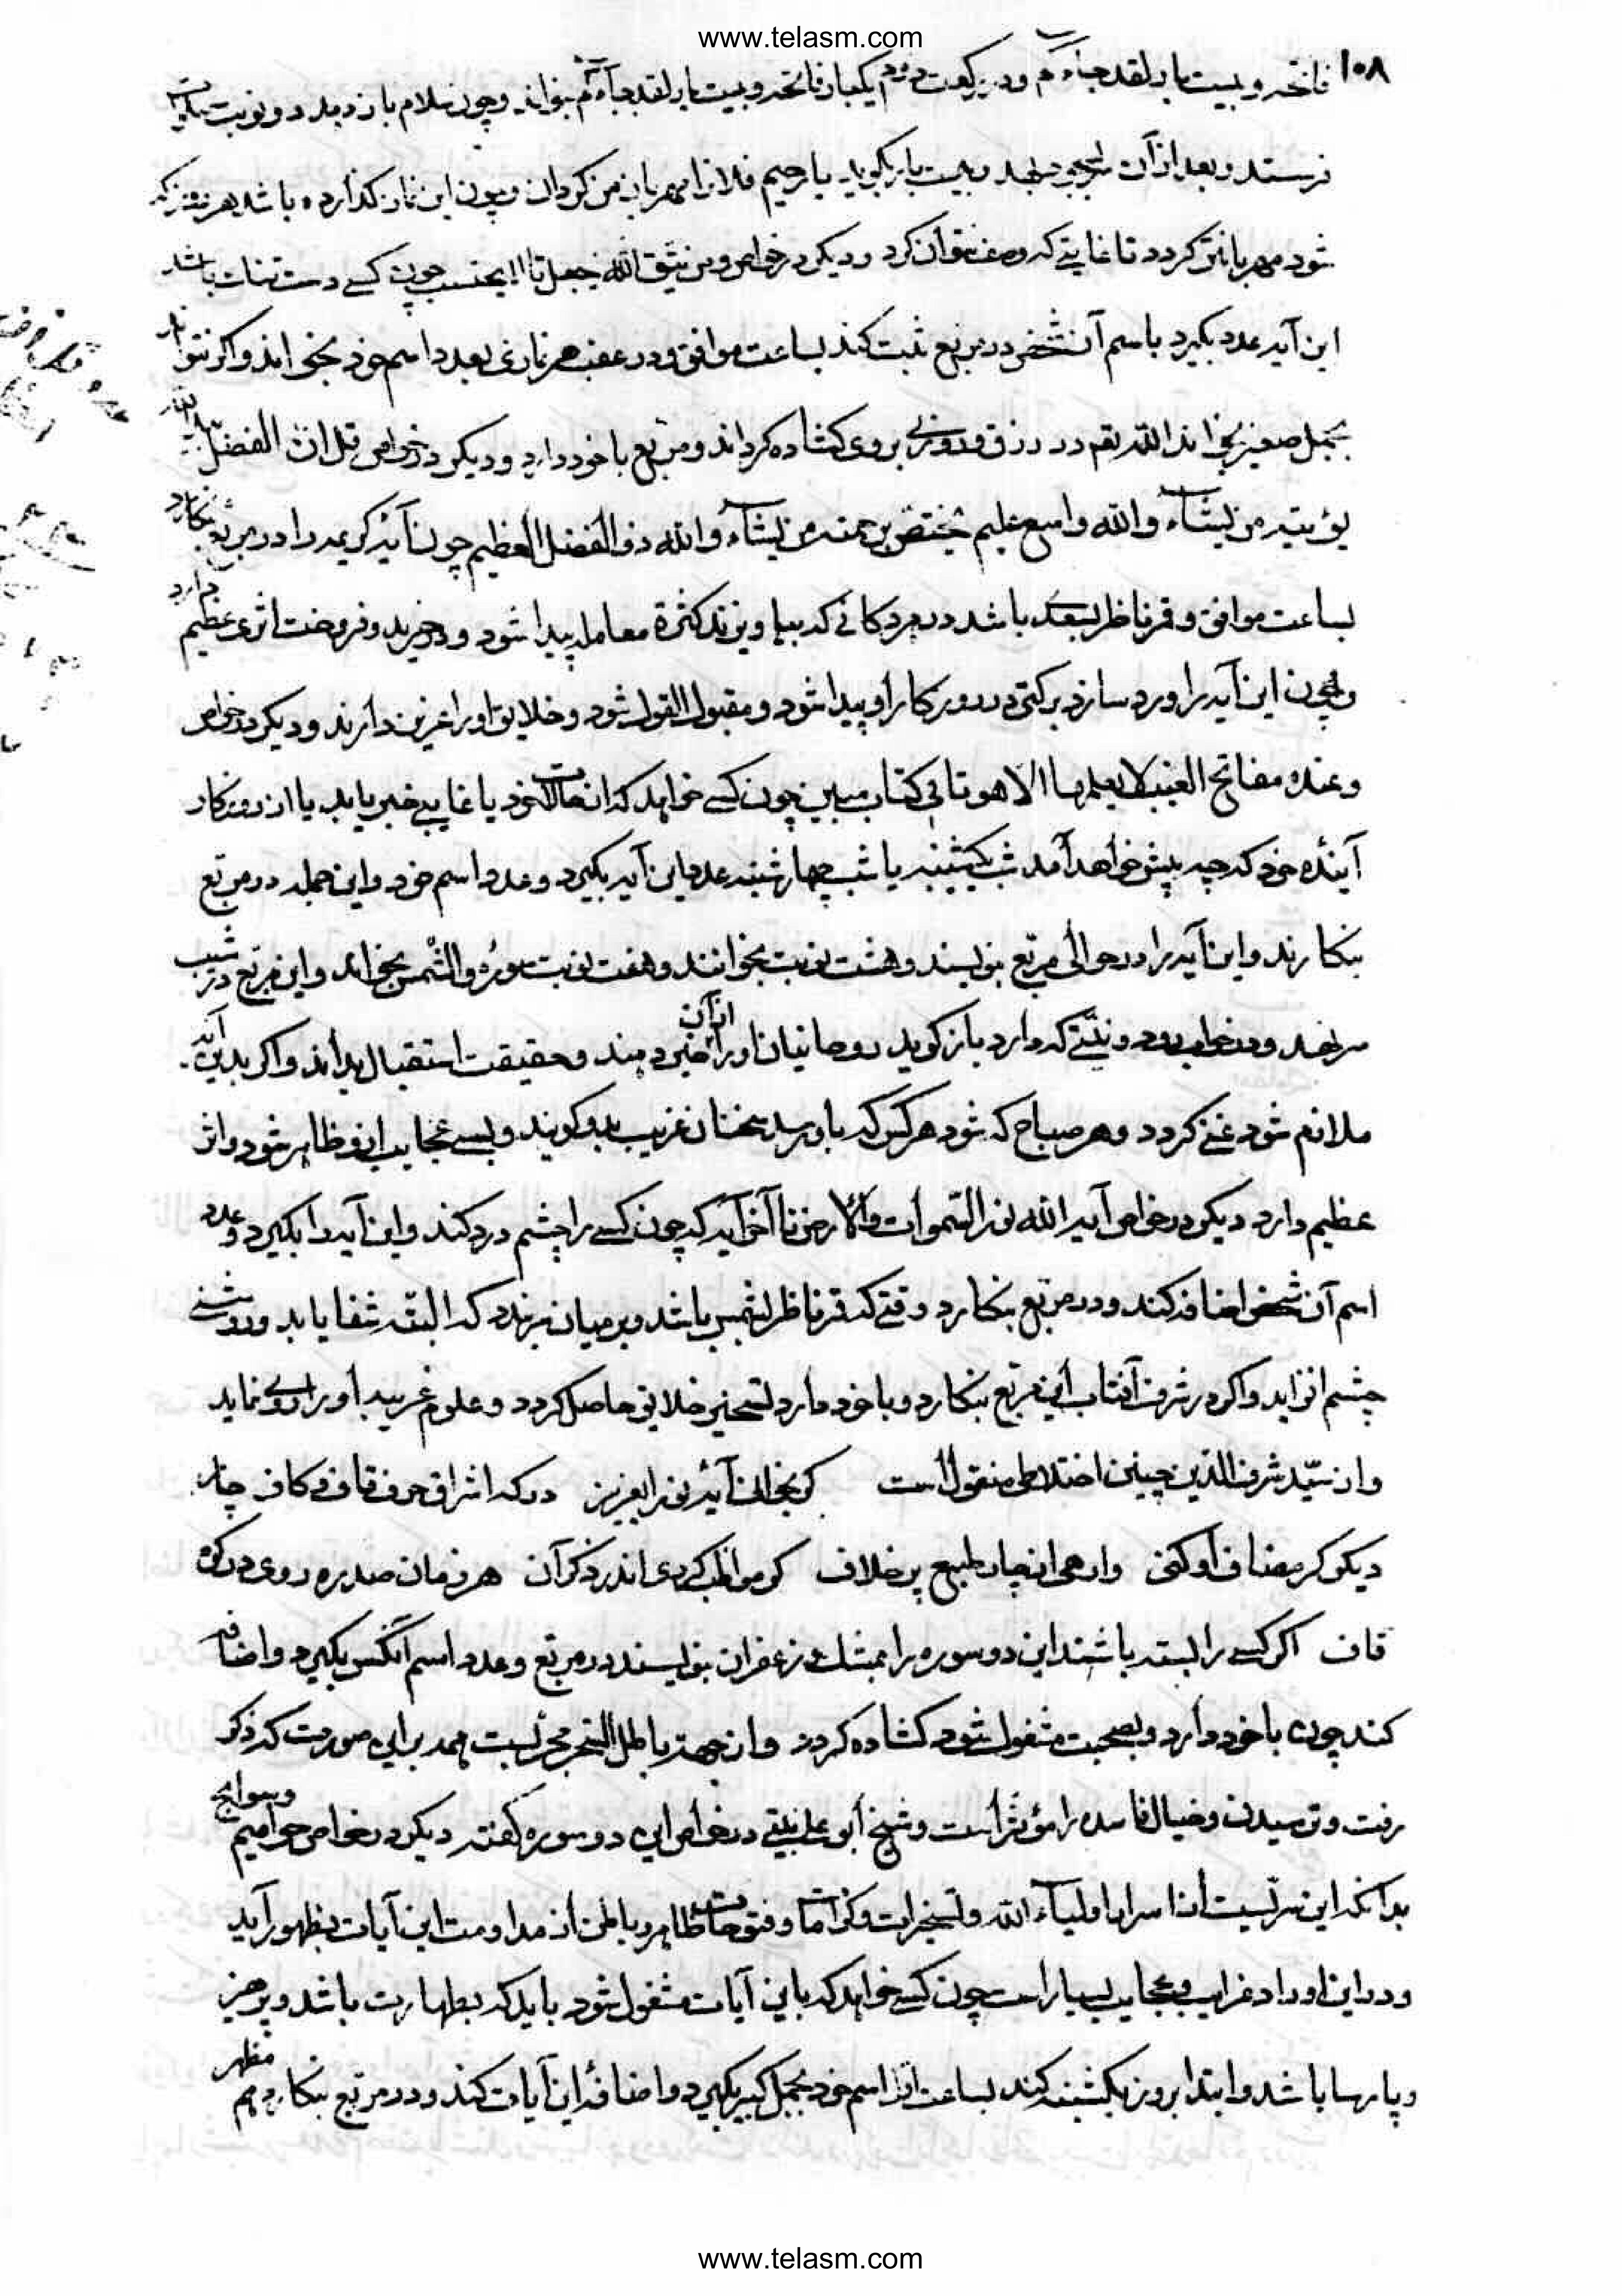 www.telasm.com
۱۰۸
فاتحه و بیست بار لقد جاءکم و در رکعت دوم یکبار فاتحه و بیست بار لقد جاءکم بخواند و چون سلام باز دهد دو نوبت صلوات
فرستد و بعد از آن سر بسجود نهد و بیست بار بگوید یا رحیم فلانرا مهربان من کردان و چون این نماز کذارده باشد هر
شود مهربانتر کردد تا غایتی که وصف نتوان کرد و دیکر در خواص ومن یتق الله یجعل تا چون کسی دست تنک باشد
این آیه عدد بکیرد باسم آن شخص در مربع ثبت کند بساعت موافق و در عقب هر نمازی بعدد اسم خود بخواند و اکر نتواند
بجمل صغیر بخواند الله تعم در رزق و روزی بروی کشاده کرداند و مربع با خود دارد و دیکر در خواص قل ان الفضل بید الله
یؤتیه من یشاء والله واسع علیم یختص برحمته من یشاء والله ذو الفضل العظیم چون آیه کریمه را در مربع بنکارد
بساعت موافق و قمر ناظر بسعد باشد در هر دکانی که بیاویزند کثرة معامله پیدا شود و در خرید و فروخت اثری عظیم دارد
و چون این آیه را ورد سازد برکتی در روزکار او پیدا شود و مقبول القول شود و خلایق او را عزیز دارند و دیکر در خواص
وعنده مفاتح الغیب لا یعلمها الا هو تا فی کتاب مبین چون کسی خواهد که از حالت خود یا غایبی خبر یابد یا از روزکار
آینده خود که چه پیش خواهد آمد شب یکشنبه یا شب چهارشنبه عدد این آیه بکیرد و عدد اسم خود و این جمله در مربع
بنکارند و این آیه را در حوالی مربع بنویسند و هشت نوبت بخوانند و هفت نوبت سوره والشمس بخواند و این مربع در شیب
سر نهد و در خواب رود و نیتی که دارد باز کوید روحانیان او را از آن خبر دهند و حقیقت استقبال بداند و اکر بدین آیه
ملازم شود غنی کردد و هر صباح که شود هر کس که باو رسد سخنان غریب بدو کویند و بسی عجایب ازو ظاهر شود و اثر
عظیم دارد دیکر در خواص آیه الله نور السموات والارض تا آخر آیه که چون کسی را چشم درد کند و این آیه را بکیرد و عدد
اسم آن شخص اضافه کند و در مربع بنکارد وقتی که قمر ناظر بشمس باشد و بر میان بندد که البته شفا یابد و روشنی
چشم افزاید و اکر در شرف آفتاب این مربع بنکارد و با خود دارد تسخیر خلایق حاصل کردد و علوم غریبه او را روی نماید
و از سید شرف الدین حسین اختلاطی منقول است کر بخوانی آیه نور ای عزیز درکه اشراق حرف قاف و کاف چار
دیکر کر مضاف او کنی وارهی از چار طبع پر خلاف کر مواظب کردی اندر ذکر آن هر زمان صد ره روی در کوه
قاف اکر کسی را بسته باشند این دو سوره را بمشک و زعفران بنویسند در مربع و عدد اسم آنکس بکیرد و اضافه
کند چون با خود دارد و بصحبت مشغول شود کشاده کردد و از جهت باطل السحر مجربست همه برین صورت که ذکر
رفت و ترسیدن و خیال فاسده را مؤثر است و شیخ ابو علی در خواص این دو سوره کفته دیکر در خواص حوامیم
بدانکه این سریست از اسرار اولیاء الله و تسخیرات و کرامات و فتوحات ظاهر و باطن از مداومت این آیات بظهور آید
و در این اوراد غرایب و عجایب بسیار است چون کسی خواهد که باین آیات مشغول شود باید که بطهارت باشد و پرهیز
و پارسا باشد و ابتدا بروز یکشنبه کند بساعت اول اسم خود بجمل کبیر بکیرد و اضافه این آیات کند و در مربع بنکارد
www.telasm.com